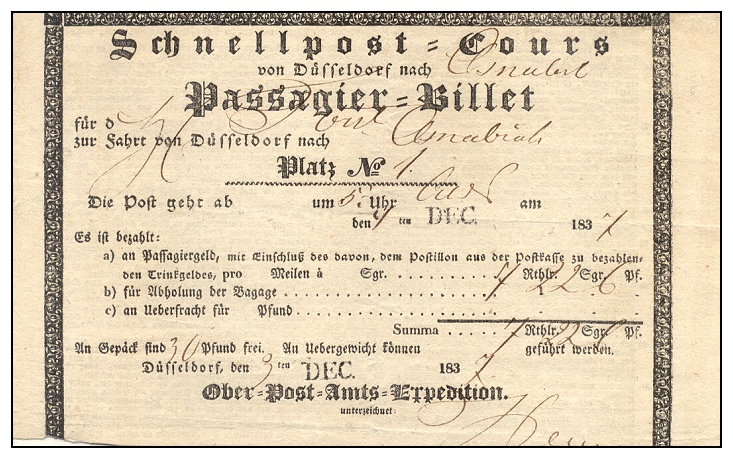 Schnellpost-Cours
von Düsseldorf nach Osnabrück
Passagier-Billet
für d H
zur Fahrt von Düsseldorf nach Osnabrück
Platz No 1.
Die Post geht ab um 5 Uhr am
den 4 ten DEC. 1837
Es ist bezahlt:
a) an Passagiergeld, mit Einschluß des davon, dem Postillon aus der Postkasse zu bezahlen-
den Trinkgeldes, pro Meilen à Sgr. . . . . . . . . . . 7 Rthlr. 22 Sgr. 6 Pf.
b) für Abholung der Bagage . . . . . . . . . . . . . . . . . .
c) an Ueberfracht für Pfund . . . . . . . . . . . . . . . .
Summa . . . . 7 Rthlr. 22 Sgr. 6 Pf.
An Gepäck sind 30 Pfund frei. An Uebergewicht können geführt werden.
Düsseldorf, den 3 ten DEC. 1837
Ober-Post-Amts-Expedition.
unterzeichnet: